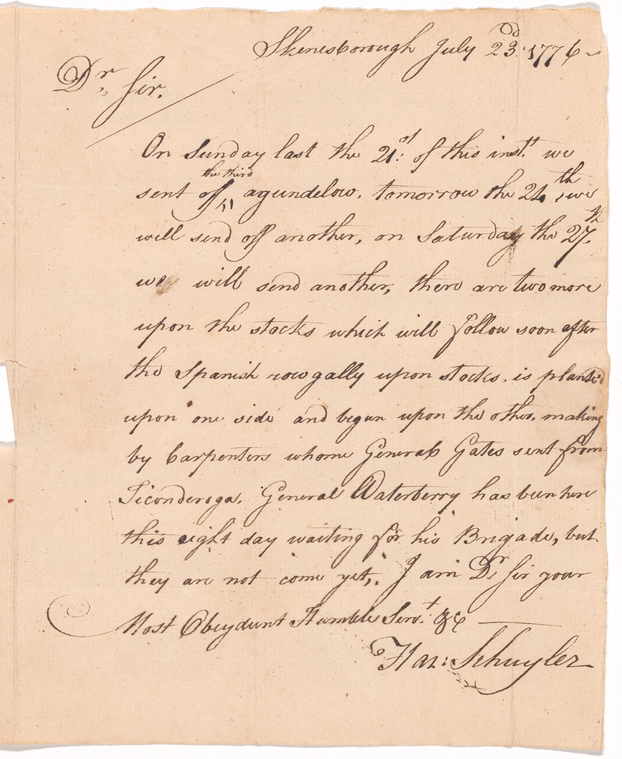 Skenesborough July 23d: 1776
Dr Sir.
On Sunday last the 21:st of this instt we
the third
sent off ^ agundelow. tomorrow the 24th, we
will send off another, on Saturday the 27th
we will send another, there are two more
upon the stocks which will follow soon after
the Spanish row gally upon stocks, is planked
upon one side and begun upon the other, making
by Carpenters whome General Gates sent from
Ticonderoga. General Waterberry has been here
this eight day waiting for his Brigade, but
they are not come yet,. I am Dr Sir your
Most Obeydunt Humble Servt. &c
Har: Schuyler